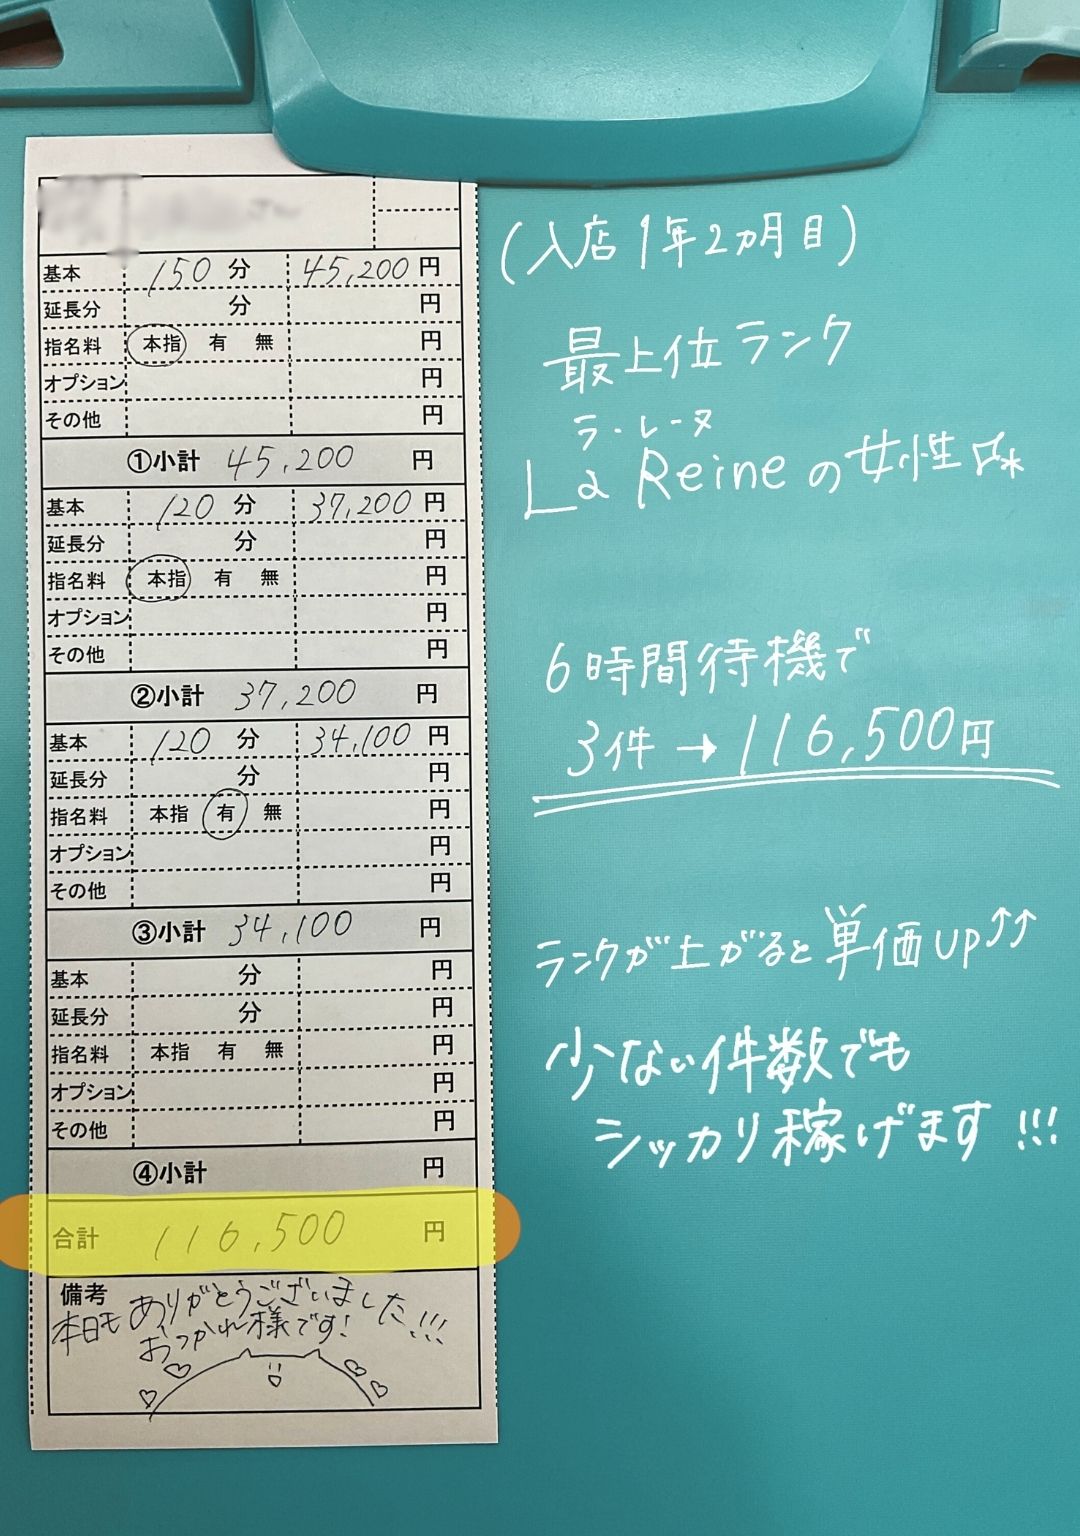 基本 150 分 45,200 円
延長分 分 円
指名料 本指 有 無 円
オプション 円
その他 円
①小計 45,200 円
基本 120 分 37,200 円
延長分 分 円
指名料 本指 有 無 円
オプション 円
その他 円
②小計 37,200 円
基本 120 分 34,100 円
延長分 分 円
指名料 本指 有 無 円
オプション 円
その他 円
③小計 34,100 円
基本 分 円
延長分 分 円
指名料 本指 有 無 円
オプション 円
その他 円
④小計 円
合計 116,500 円
備考
本日もありがとうございました!!!
おつかれ様です!
(入店1年2ヵ月目)
最上位ランク
ラ・レーヌ
La Reineの女性
6時間待機で
3件→116,500円
ランクが上がると単価up↑↑
少ない件数でも
シッカリ稼げます!!!